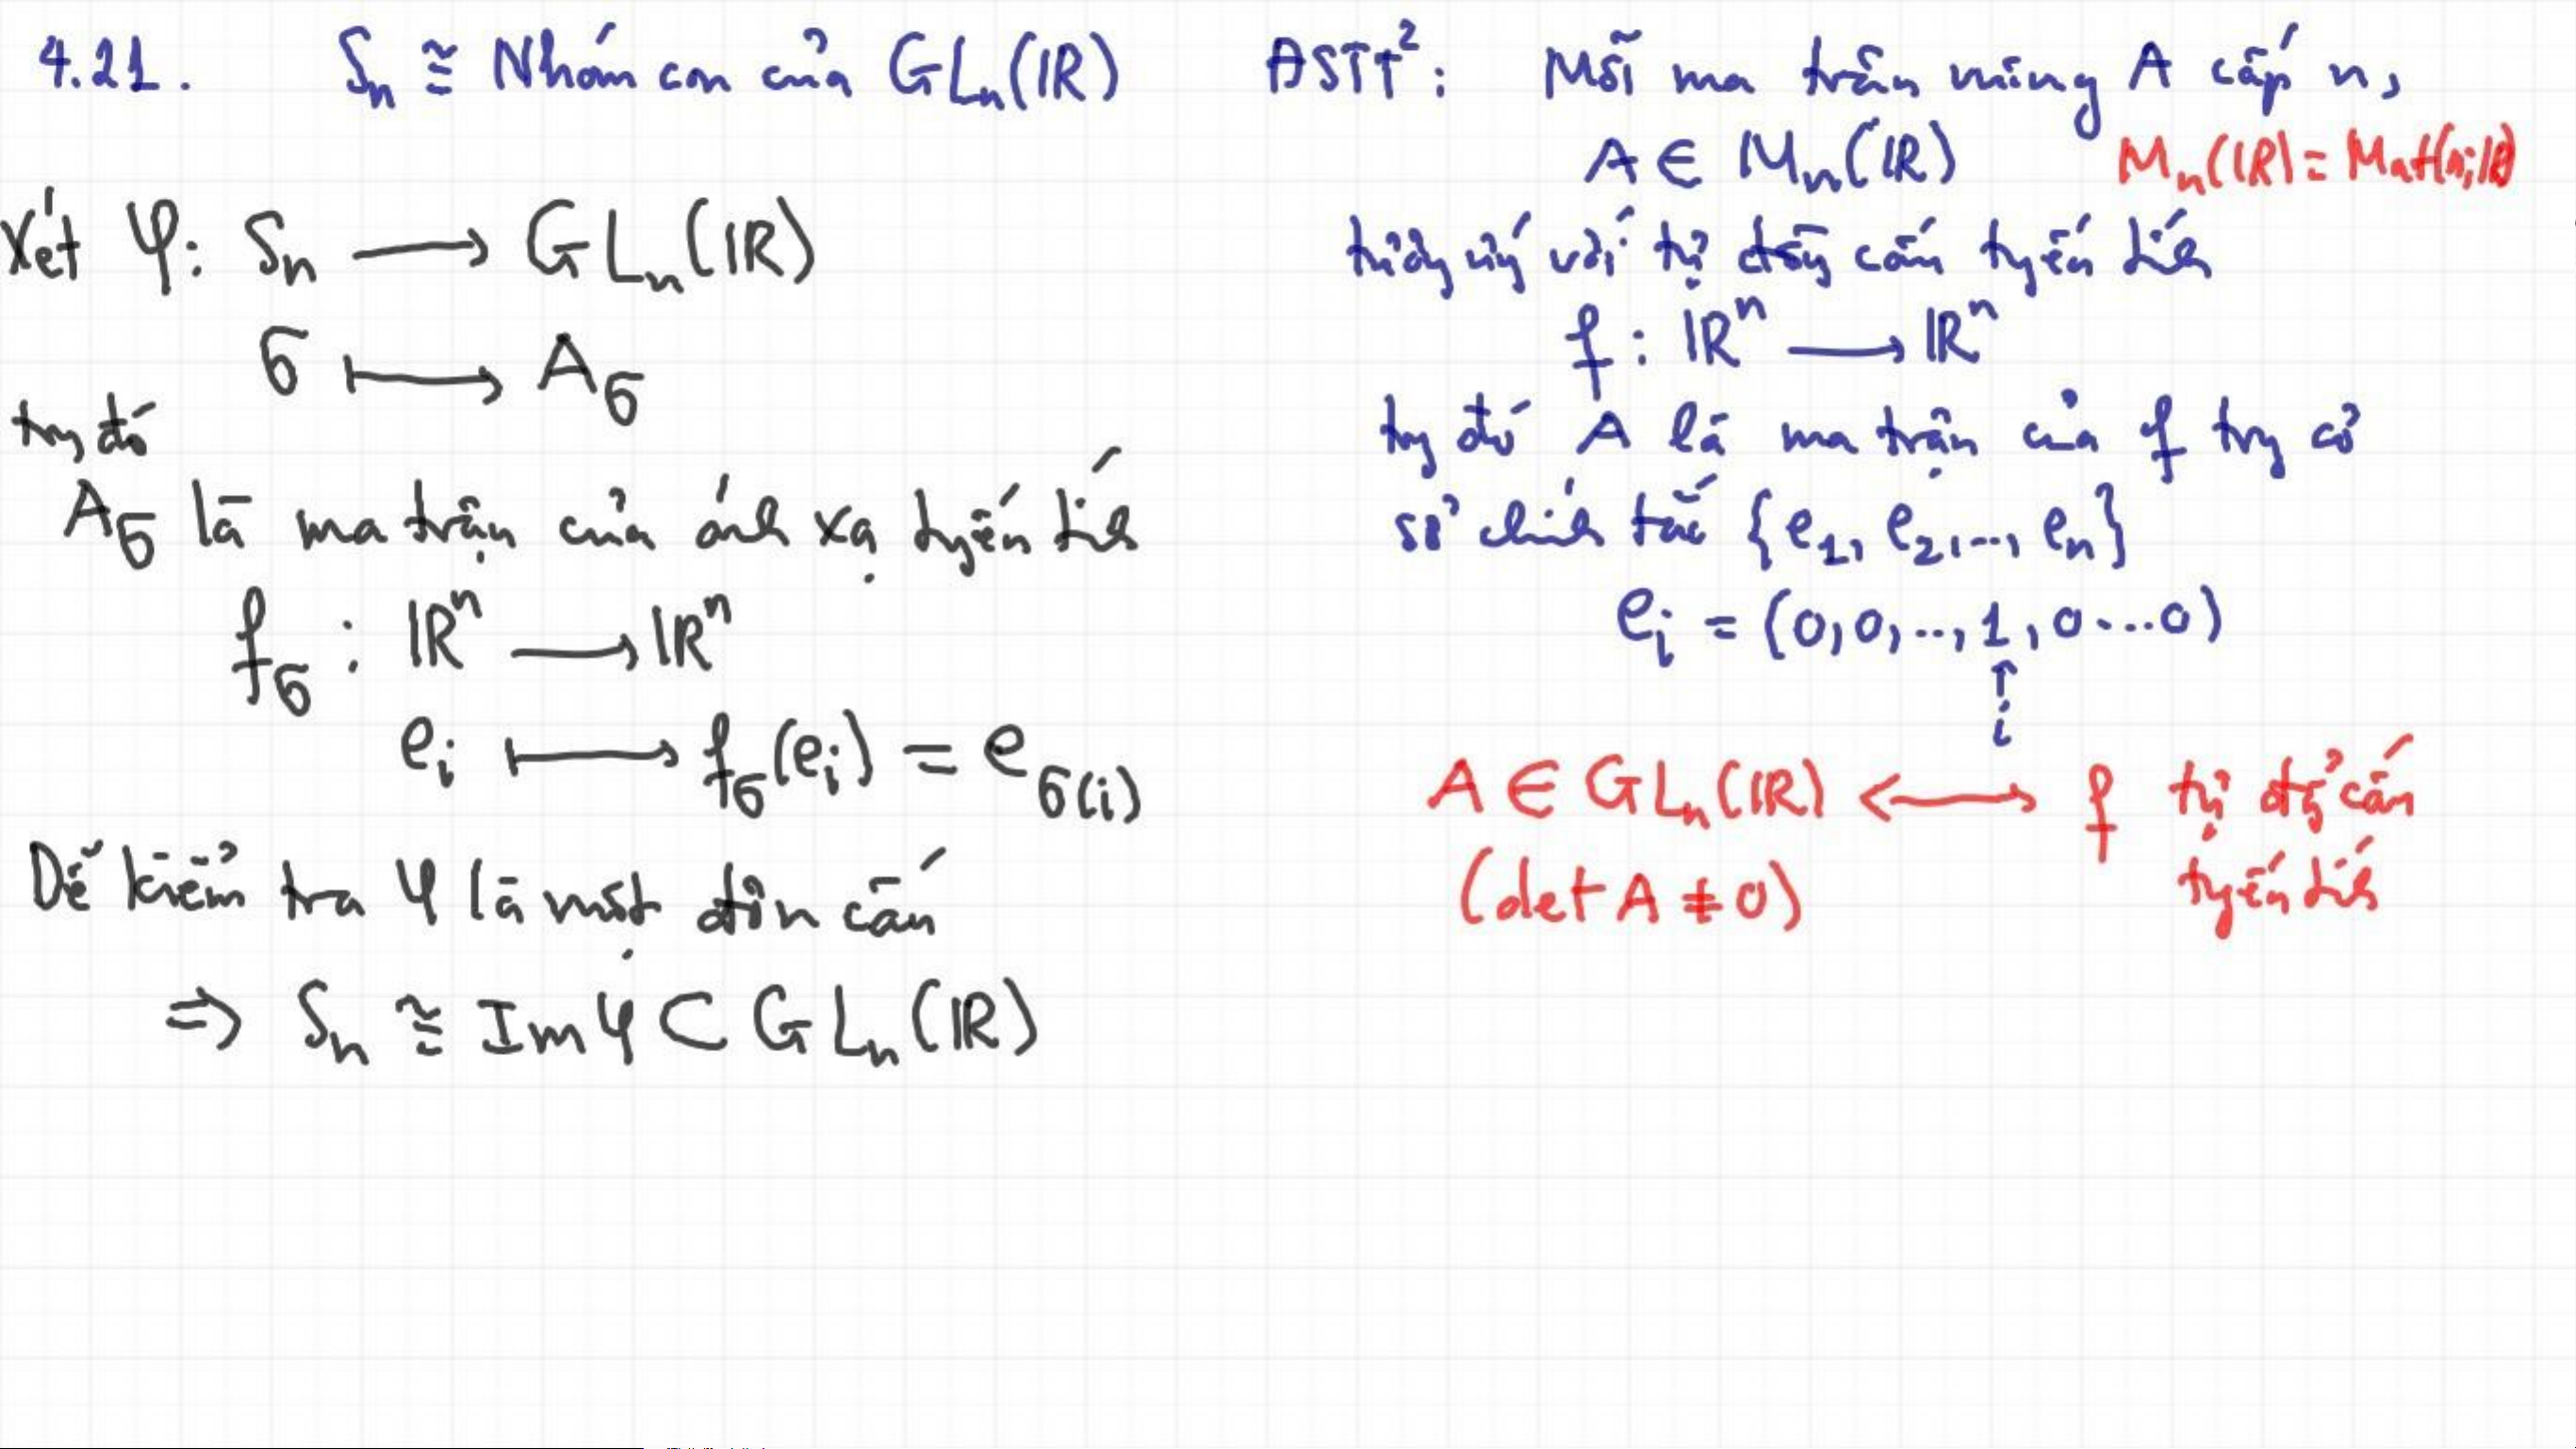 4.21. Sₙ ≅ Nhóm con của GLₙ(ℝ)
Xét φ: Sₙ ⟶ GLₙ(ℝ)
σ ⟼ A_σ
trg đó
A_σ là ma trận của ánh xạ tuyến tính
f_σ : ℝⁿ ⟶ ℝⁿ
eᵢ ⟼ f_σ(eᵢ) = e_σ(i)
Dễ kiểm tra φ là một đơn cấu
⇒ Sₙ ≅ Im φ ⊂ GLₙ(ℝ)
ĐSTT²: Mỗi ma trận vuông A cấp n,
A ∈ Mₙ(ℝ) Mₙ(ℝ) = Mat(n; ℝ)
tương ứng với tự đồng cấu tuyến tính
f : ℝⁿ ⟶ ℝⁿ
trg đó A là ma trận của f trg cơ
sở chính tắc {e₁, e₂, ..., eₙ}
eᵢ = (0, 0, .., 1, 0 ... 0)
↑
i
A ∈ GLₙ(ℝ) ⟷ f tự đẳng cấu
(det A ≠ 0) tuyến tính